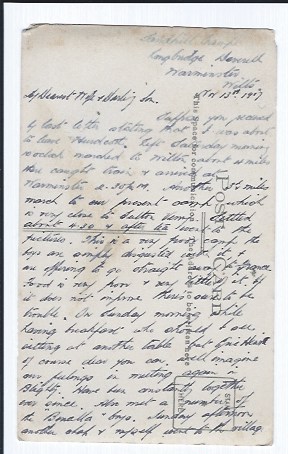 Longbridge Deverill
Warminster
Wilts
Nov 13th 1917
My Dearest Wife & Darling Son.
Suppose you received
my last letter stating that I was about
to leave Hurdcott. Left Saturday morning
o'clock marched to Wilton about miles
there caught train & arrived at
Warminster 2.30 P.M. Another 3½ miles
march to our present camp which
is very close to Sutton Veny. Settled
about 4.30 & after tea went to the
pictures. This is a very poor camp the
boys are simply disgusted with it &
are offering to go straight away to France.
Food is very poor & very little of it. If
it does not improve there's sure to be
trouble. On Sunday morning while
having breakfast who should I see
sitting at another table but
of course dear you can well imagine
our feelings in meeting again in
Blighty. Have been constantly together
ever since. Also met a number of
the "Benalla" boys. Sunday afternoon
another chap & myself went to the village
This space for communication
The address to be written here
POST CARD
STAMP
HERE